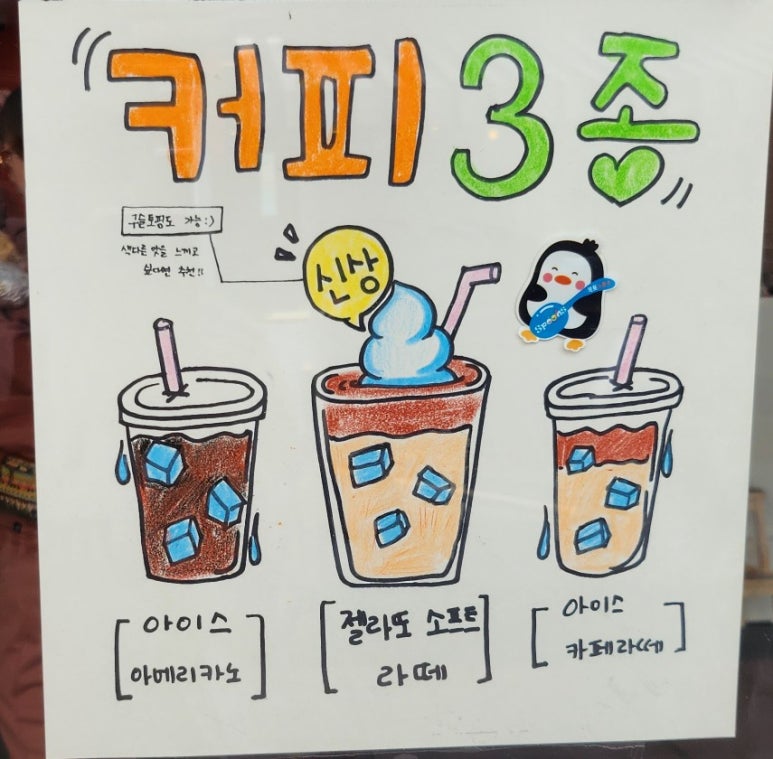 커피 3종
구슬토핑도 가능 :)
색다른 맛을 느끼고
싶다면 추천!!
신상
Spoons
아이스
아메리카노
젤라또 소프트
라떼
아이스
카페라떼